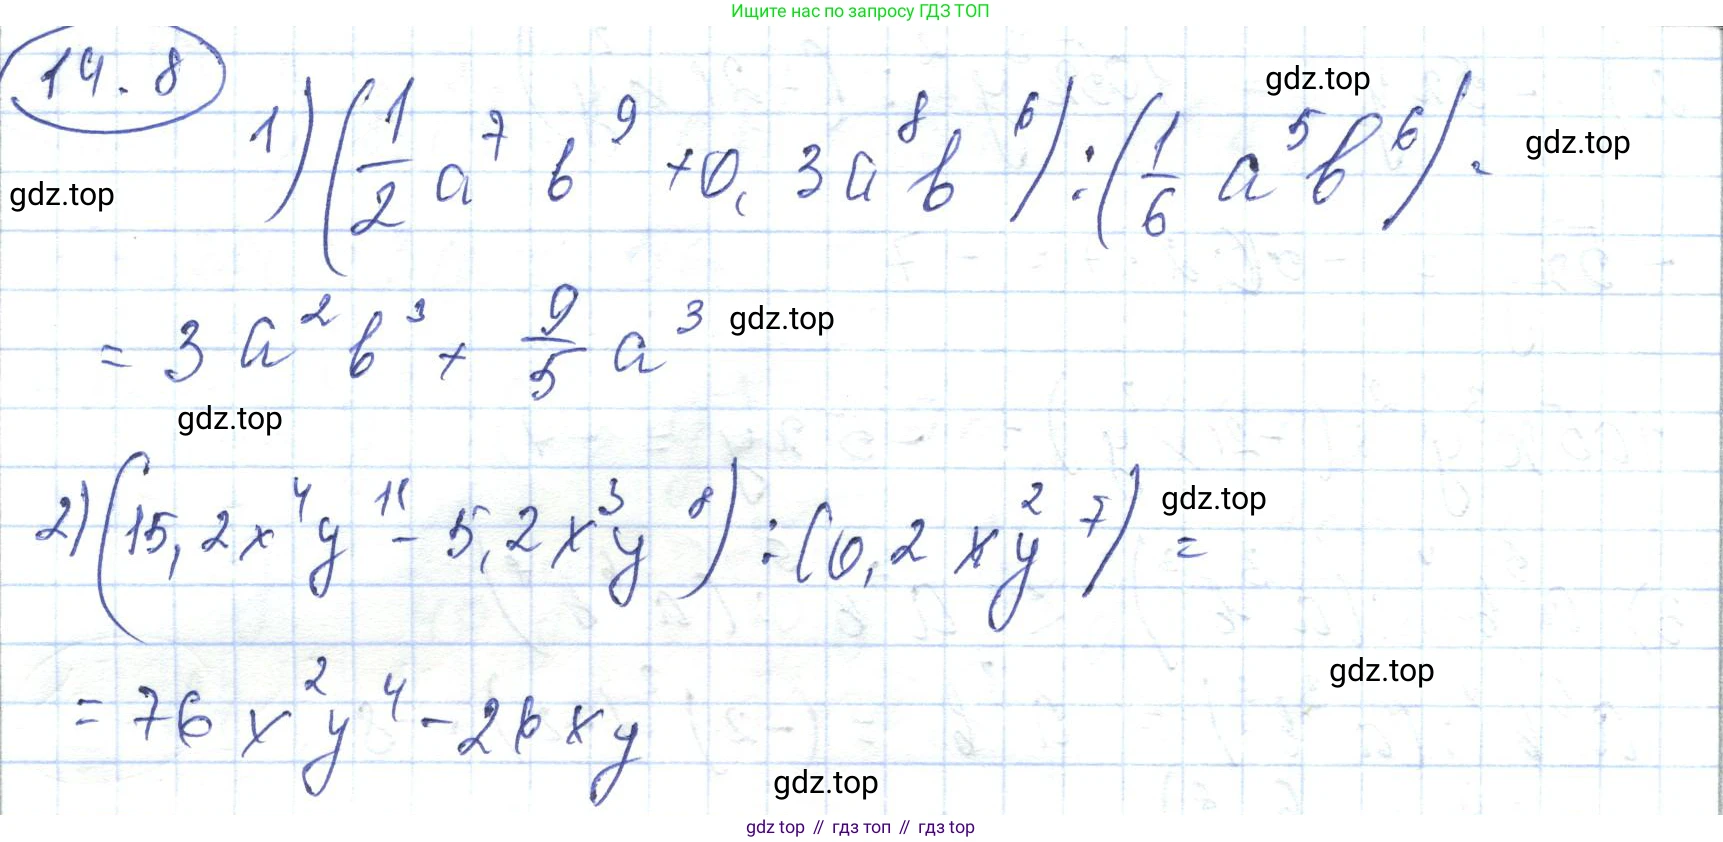 Ищите нас по запросу ГДЗ ТОП
14.8
gdz.top
1) (1/2 a⁷ b⁹ + 0,3 a⁸ b⁶) : (1/6 a⁵ b⁶) =
gdz.top
gdz.top
= 3 a² b³ + 9/5 a³
gdz.top
gdz.top
2) (15,2 x⁴ y¹¹ - 5,2 x³ y⁸) : (0,2 x y² ⁷) =
gdz.top
gdz.top
= 76 x² y⁴ - 26 x y
gdz.top
gdz top // гдз топ // gdz top